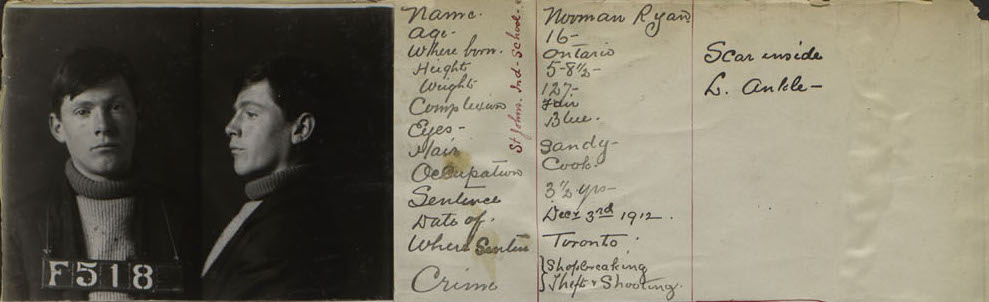 F518
Name. Norman Ryan
age. 16-
Where born. Ontario
Height 5-8½-
Weight 127-
Complexion Fair
Eyes- Blue.
Hair Sandy-
Occupation Cook.
Sentence 3½ yrs-
Date of. Decr 3rd 1912.
Where Senten Toronto.
Crime Shopbreaking
Theft & Shooting.
St Johns. Ind- School-
Scar inside
L. Ankle-